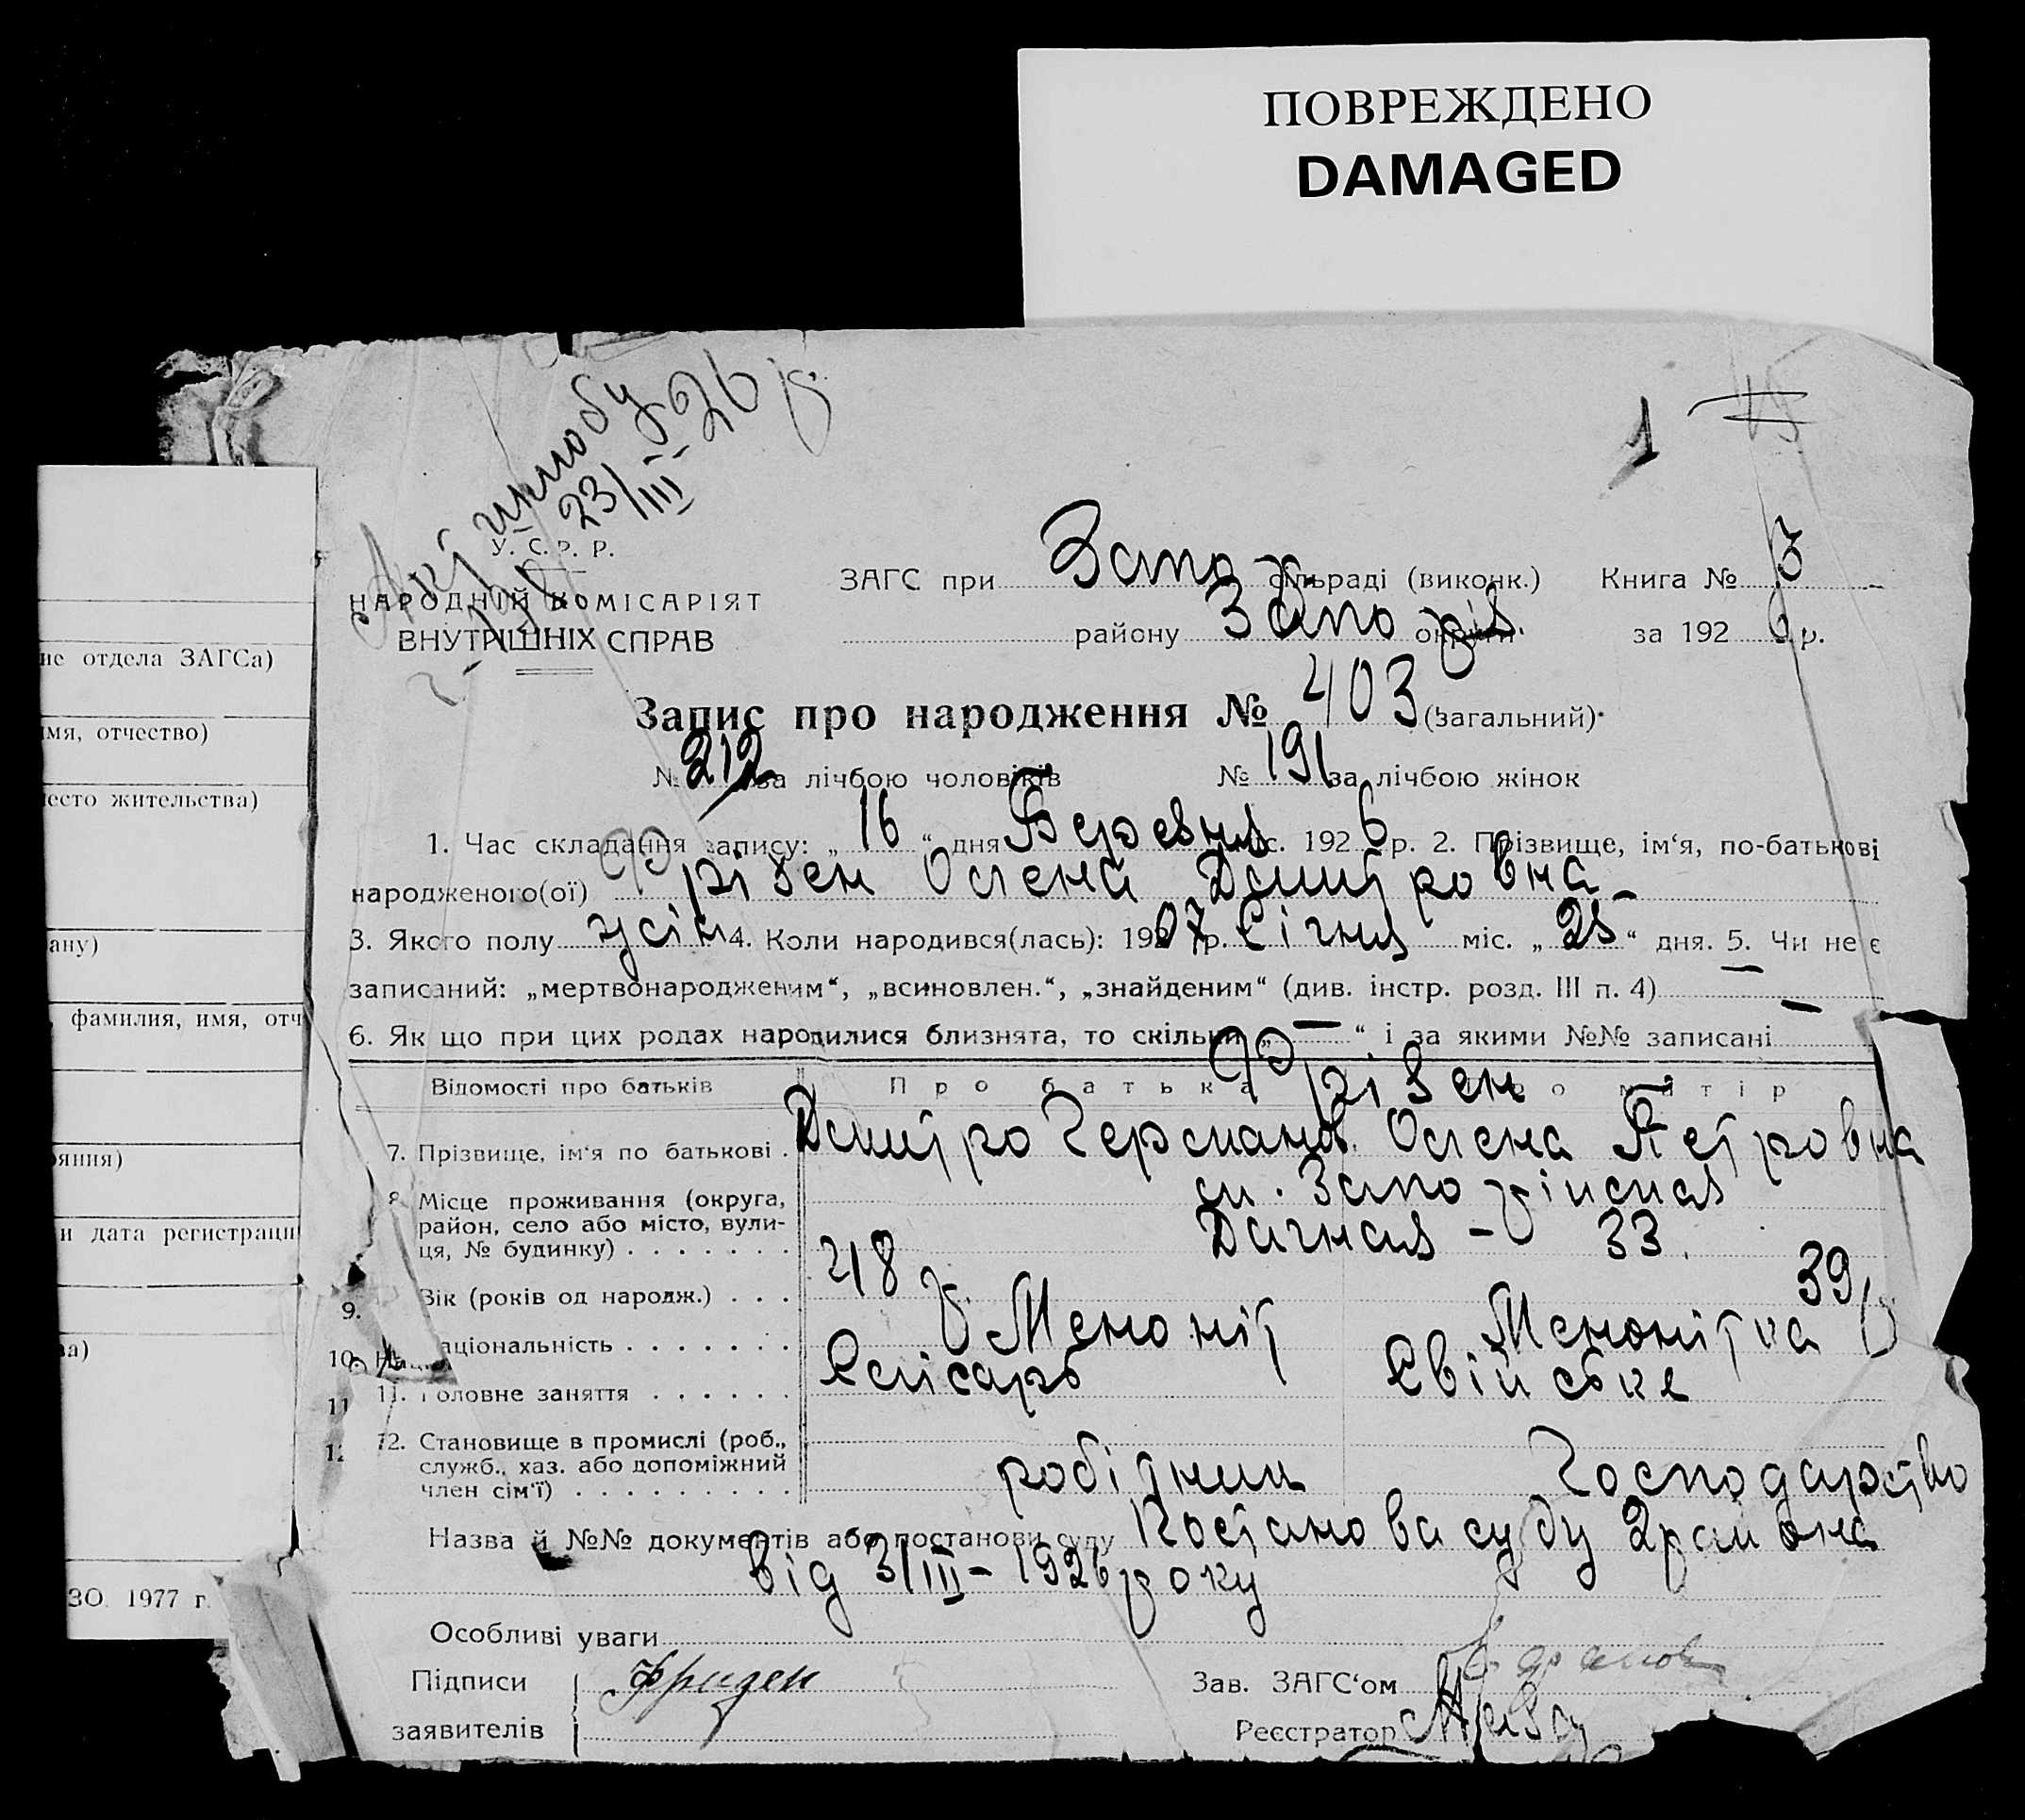 ПОВРЕЖДЕНО
DAMAGED
23/III-26 р.
1
У. С. Р. Р.
НАРОДНІЙ КОМІСАРІЯТ
ВНУТРІШНІХ СПРАВ
ЗАГС при Запор. сільраді (виконк.) Книга № 3
району Запоріз. округи за 1926 р.
Запис про народження № 403 (загальний)
№ 212 за лічбою чоловіків № 191 за лічбою жінок
1. Час складання запису: „ 16 “ дня Березня міс. 1926 р. 2. Прізвище, ім‘я, по-батькові
народженого(ої) Фрізен Олена Дмитровна
3. Якого полу жін 4. Коли народився(лась): 1907 р. Січня міс. „ 25 “ дня. 5. Чи не є
записаний: „мертвонародженим“, „всиновлен.“, „знайденим“ (див. інстр. розд. III п. 4) —
6. Як що при цих родах народилися близнята, то скільки „ — “ і за якими №№ записані —
Відомості про батьків Про батька Про матір
Фрізен
7. Прізвище, ім‘я по батькові . Дмитро Германов. Олена Петровна
8. Місце проживання (округа,
район, село або місто, вули-
ця, № будинку) . . . . . . .
м. Запоріжжя
Дачная - 33.
9. Вік (років од народж.) . . . 48 39
10. Національність . . . . . . . Меноніт Менонітка
11. Головне заняття . . . . . . Слісарь Свійське
12. Становище в промислі (роб.,
служб., хаз. або допоміжний
член сім‘ї) . . . . . . . . . робітник Господарство
Назва й №№ документів або постанови суду Постанова суду 2 района
від 3/III-1926 року
Особливі уваги
Підписи Фризен Зав. ЗАГС‘ом
заявителів Реєстратор
ие отдела ЗАГСа)
имя, отчество)
есто жительства)
ану)
фамилия, имя, отч
ояния)
и дата регистраци
ва)
ЗО. 1977 г.